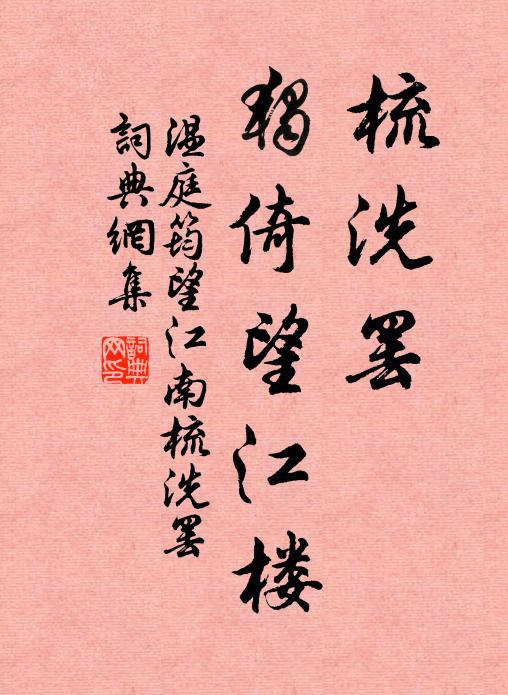 梳洗罢
独倚望江楼
温庭筠望江南梳洗罢
詞典網集
詞典网印